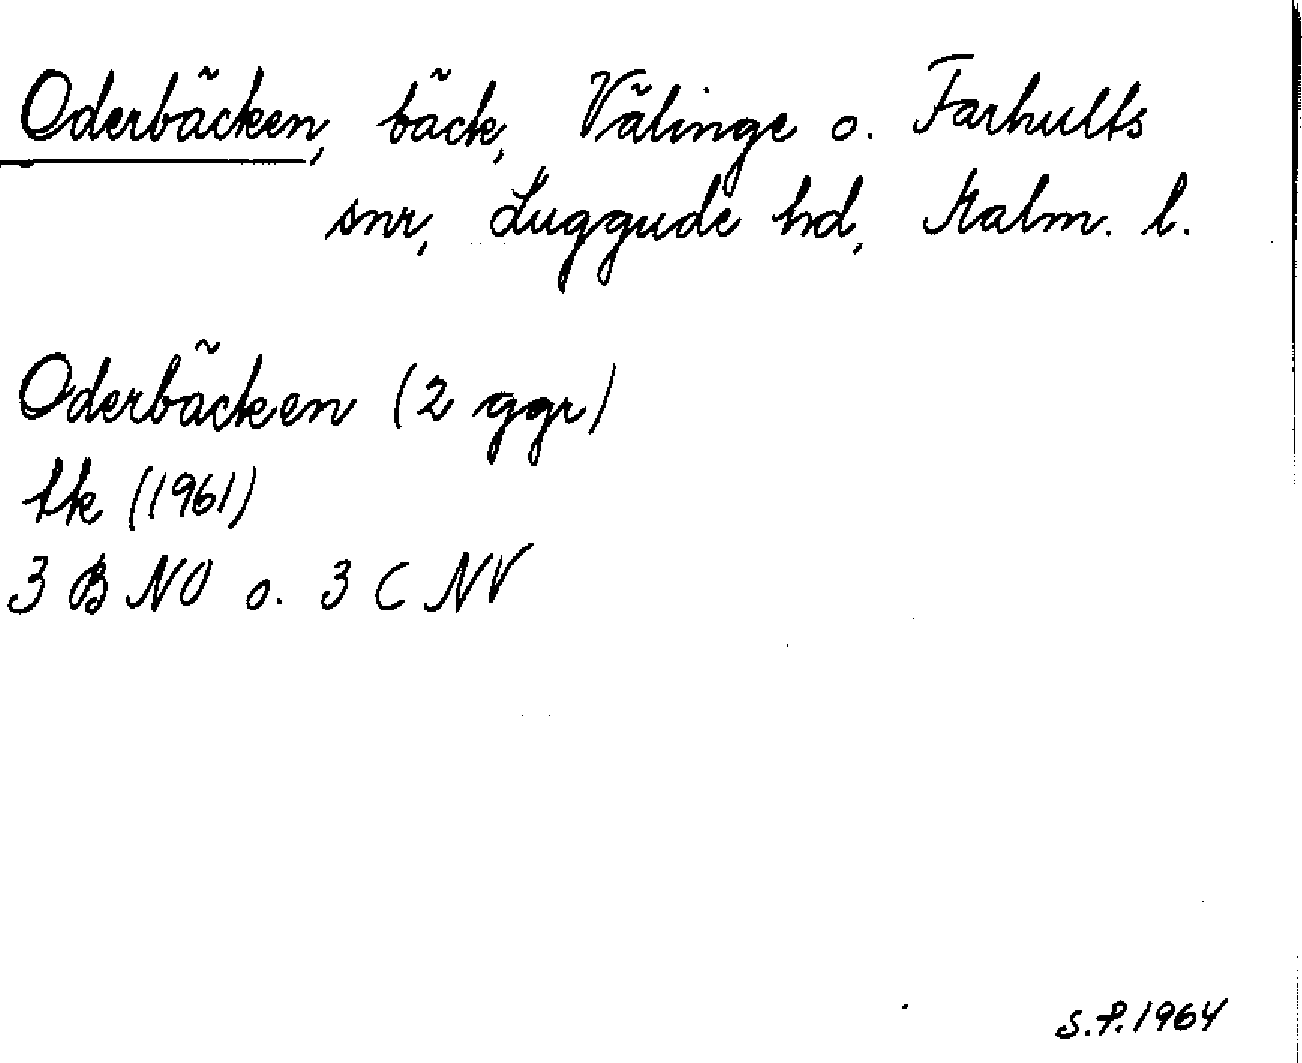 Oderbäcken, bäck, Välinge o. Farhults
snr, Luggude hd, Malm. l.
Oderbäcken (2 ggr)
tk (1961)
3 B NO o. 3 C NV
S.P. 1964